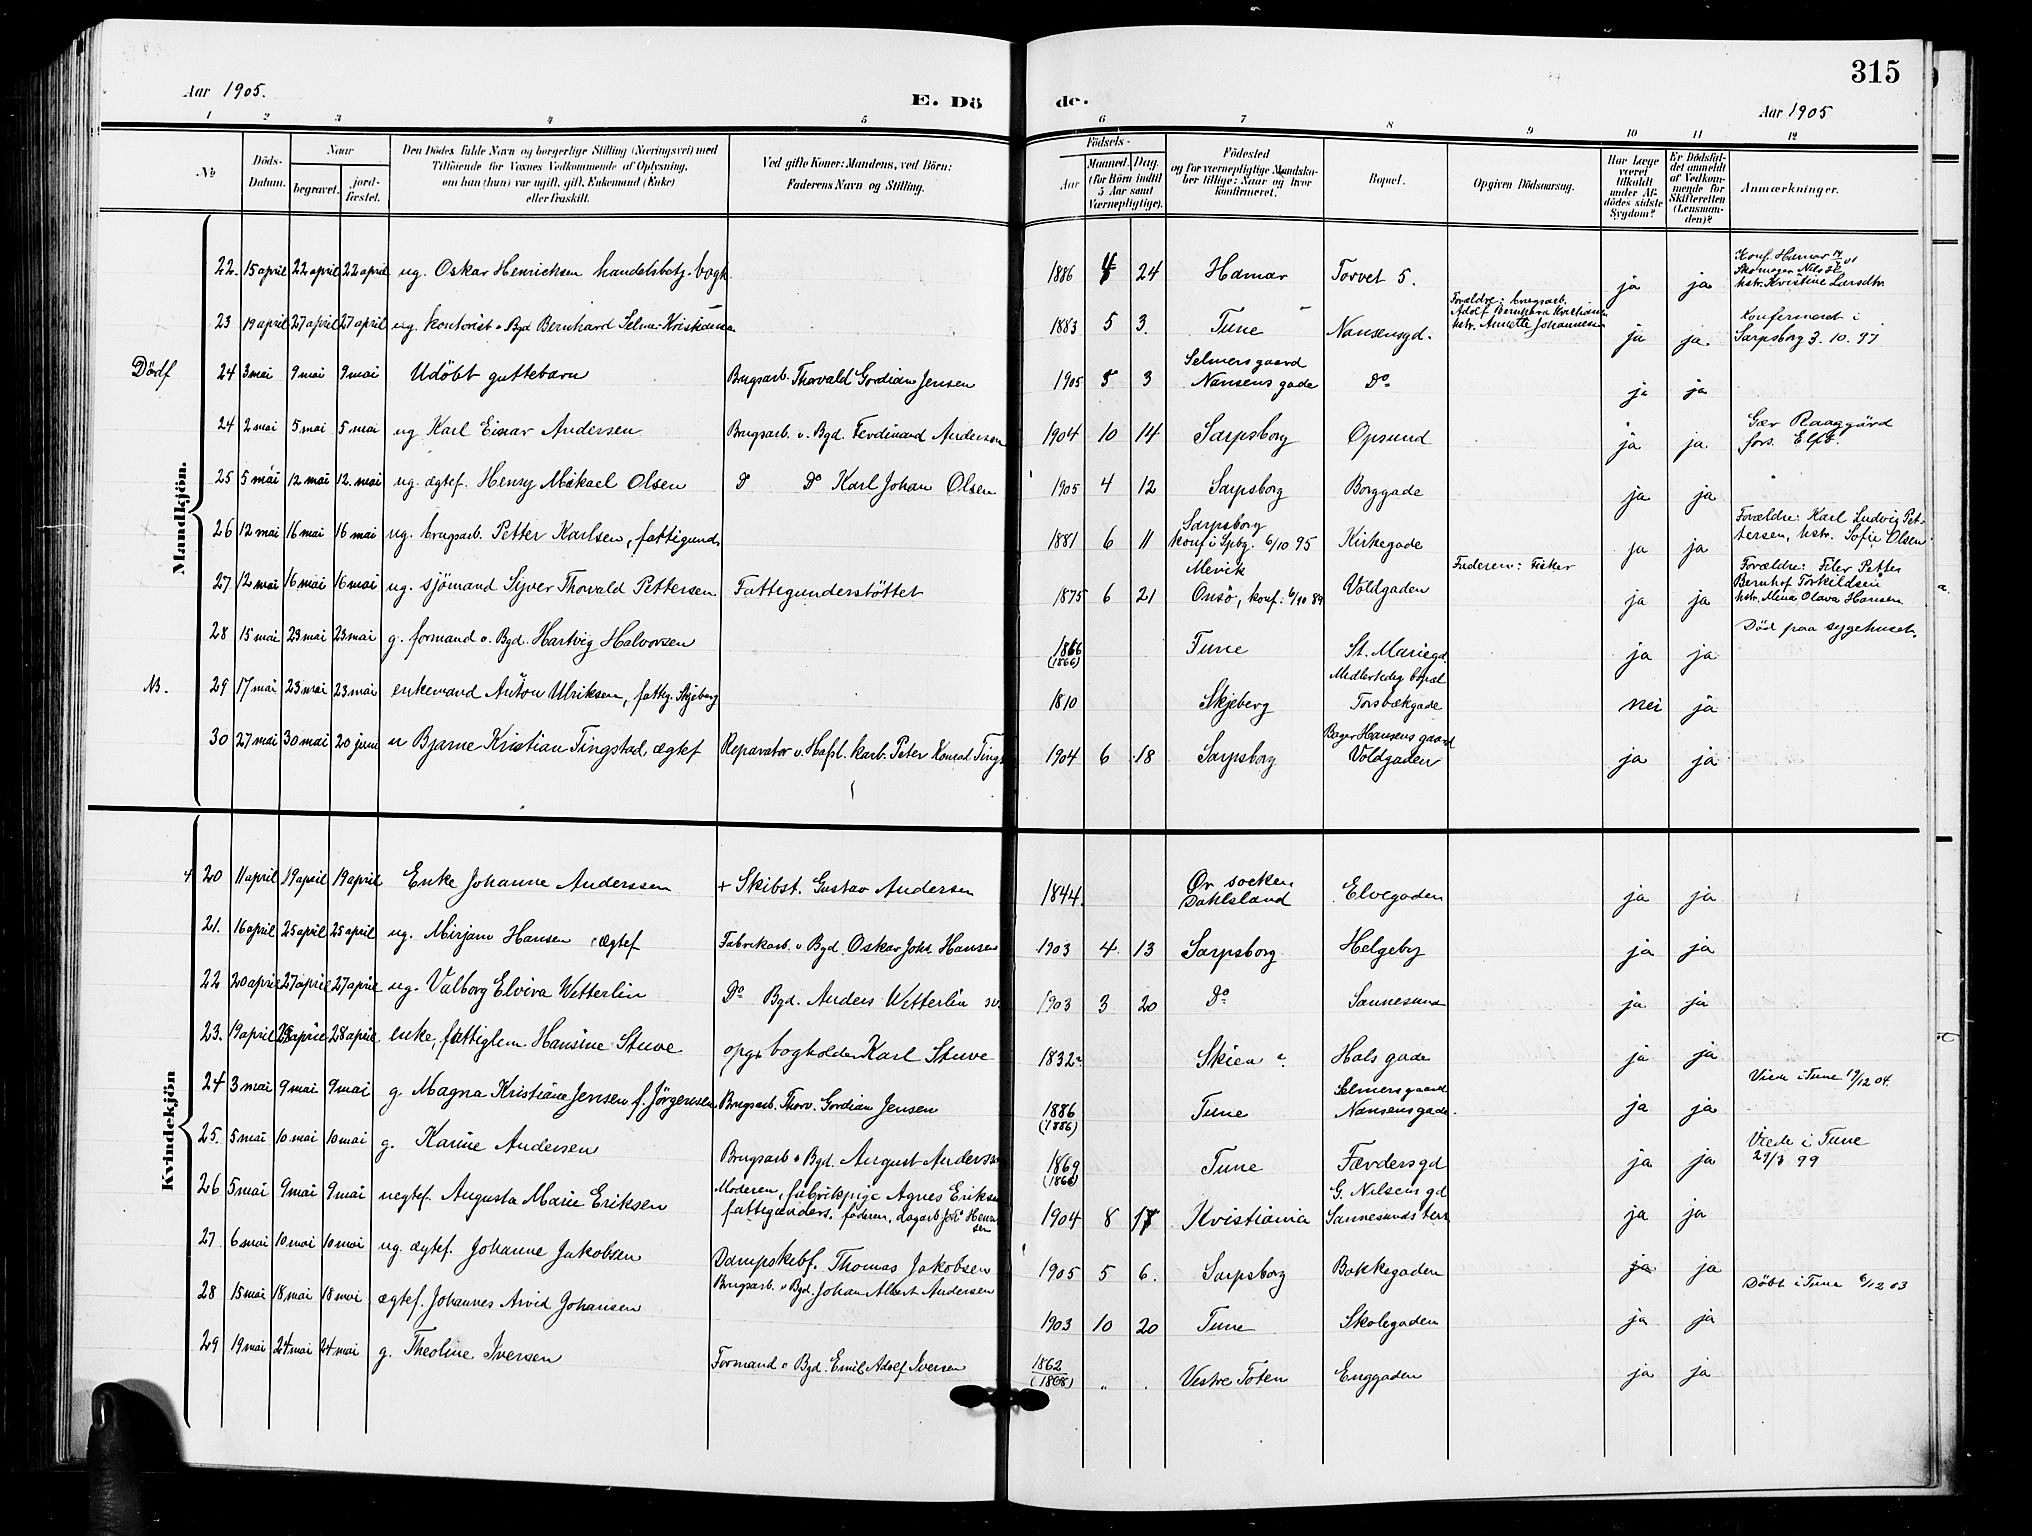 315
Aar 1905.
E. Dö
de.
Aar 1905
1 2 3 4 5 6 7 8 9 10 11 12
No
Döds-Datum.
Naar
begravet.
jord-fæstet.
Den Dödes fulde Navn og borgerlige Stilling (Næringsvei) med
Tilföiende for Voxnes Vedkommende af Oplysning,
om han (hun) var ugift, gift, Enkemand (Enke)
eller fraskilt.
Ved gifte Koner: Mandens, ved Börn:
Faderens Navn og Stilling.
Födsels-
Aar
Maaned. Dag.
(for Börn indtil
5 Aar samt
Værnepligtige).
Födested
og for værnepligtige Mandska-
ber tillige: Naar og hvor
konfirmeret.
Bopæl.
Opgiven Dödsaarsag.
Har Læge
været
tilkaldt
under Af-
dödes sidste
Sygdom?
Er Dödsfal-
det anmeldt
af Vedkom-
mende for
Skifteretten
(Lensman-
den)?
Anmærkninger.
Mandkjön.
22. 15 april 22 april 22 april ug. Oskar Henrichsen handelsbetj. bogh. 1886 4 24 Hamar Torvet 5. ja ja Konf. Hamar
Kristine Larsdtr
23 19 april 27 april 27 april ug. kontorist v. Bgd Bernhard Selmer Kristiansen 1883 5 3. Tune Nansensgd. Forældre: brugsarb.
Adolf Bernhard Kristiansen
hstr. Annette Johannesen ja ja. Konfermeret i
Sarpsborg 3. 10. 97
Dödf 24 3 mai 9 mai 9 mai Udöbt guttebarn Brugsarb. Thorvald Gordian Jensen 1905 5 3 Selmersgaard
Nansens gade Do ja ja
24 2 mai 5 mai 5 mai ug Karl Einar Andersen Brugsarb. v. Bgd. Ferdinand Andersen 1904 10 14 Sarpsborg Opsund ja ja. Gær Raaggärd
fors. Elfs.
25 5 mai 12 mai 12. mai ug. ægtef. Henry Mikael Olsen Do Do Karl Johan Olsen 1905 4 12 Sarpsborg Borggade ja ja
26 12 mai 16 mai 16 mai ug. brugsarb. Petter Karlsen, fattigund. 1881 6 11 Sarpsborg
konf i Spbg. 6/10 95 Kirkegade ja ja Forældre: Karl Ludvig Pet-
tersen, hstr. Sofie Olsen
27 12 mai 16 mai 16 mai ug. sjömand Syver Thorvald Pettersen Fattigunderstöttet 1875 6 21 Mevik
Onsö, konf. 6/10 89 Voldgaden Faderen: Fisker ja ja Forældre: Fisker Petter
Bernhof Torkildsen
hstr. Mina Olava Hansen
28 15 mai 23 mai 23 mai g. formand v. Bgd. Hartvig Halvorsen 1866
(1866) Tune St. Mariegd. ja ja Död paa sygehuset.
NB. 29 17 mai 23 mai 23 mai enkemand Anton Ulriksen, fattig. Skjeberg 1810 Skjeberg Medlertidig bopæl
Torsbækgade nei ja
30 27 mai 30 mai 20 juni u Bjarne Kristian Tingstad ægtef Reparatør v. Hafsl. karb. Peter Konrad Tingst 1904 6 18 Sarpsborg Bager Hansens gaard
Voldgaden ja ja
Kvindekjön
20 11 april 19 april 19 april Enke Johanne Anderssen + Skibst. Gustav Andersen 1844. Ør socken
Dahlsland Elvegaden ja ja
21. 16 april 25 april 25 april ug. Mirjam Hansen ægtef Fabrikarb. v Bgd. Oskar Joh. Hansen 1903 4 13 Sarpsborg Helgeby ja ja
22 20 april 27 april 27 april ug. Valborg Elvira Wetterlin Do Bgd. Anders Wetterlin sv. 1903 3 20 Do Sannesund ja ja
23. 19 april 28 april 28 april enke, fattiglem. Hansine Stuve opg. bogholder Karl Stuve 1832 Skien Hals gade ja ja
24 3 mai 9 mai 9 mai g. Magna Kristiane Jensen f. Jörgensen Brugsarb. Thorv. Gordian Jensen 1886
(1886) Tune Selmersgaard
Nansensgade ja ja Viede i Tune 19/12 04.
25. 5 mai 10 mai 10 mai g. Karine Andersen Brugsarb v Bgd. August Andersen 1869
(1866) Tune Færdersgd ja ja Viede i Tune
29/3 99
26 5 mai 9 mai 9 mai uegtef. Augusta Marie Eriksen Moderen, fabrikpige Agnes Eriksen
fattigunders. faderen, dagarb Joh. Henrik
sen 1904 8 17 Kristiania G. Nilsens gd
Sannesunds terr ja ja
27. 6 mai 10 mai 10 mai ug. ægtef. Johanne Jakobsen Dampskibf. Thomas Jakobsen 1905 5 6. Sarpsborg Bakkegaden ja ja
28 15 mai 18 mai 18 mai ægtef. Johannes Arvid Johansen Brugsarb. v Bgd. Johan Albert Andersen 1903 10 20 Tune Skolegaden ja ja Döbt i Tune 6/12 03
29 19 mai 24 mai 24 mai g. Theoline Iversen Formand v Bgd. Emil Adolf Iversen 1862
(1868) Vestre Toten Enggaden ja ja